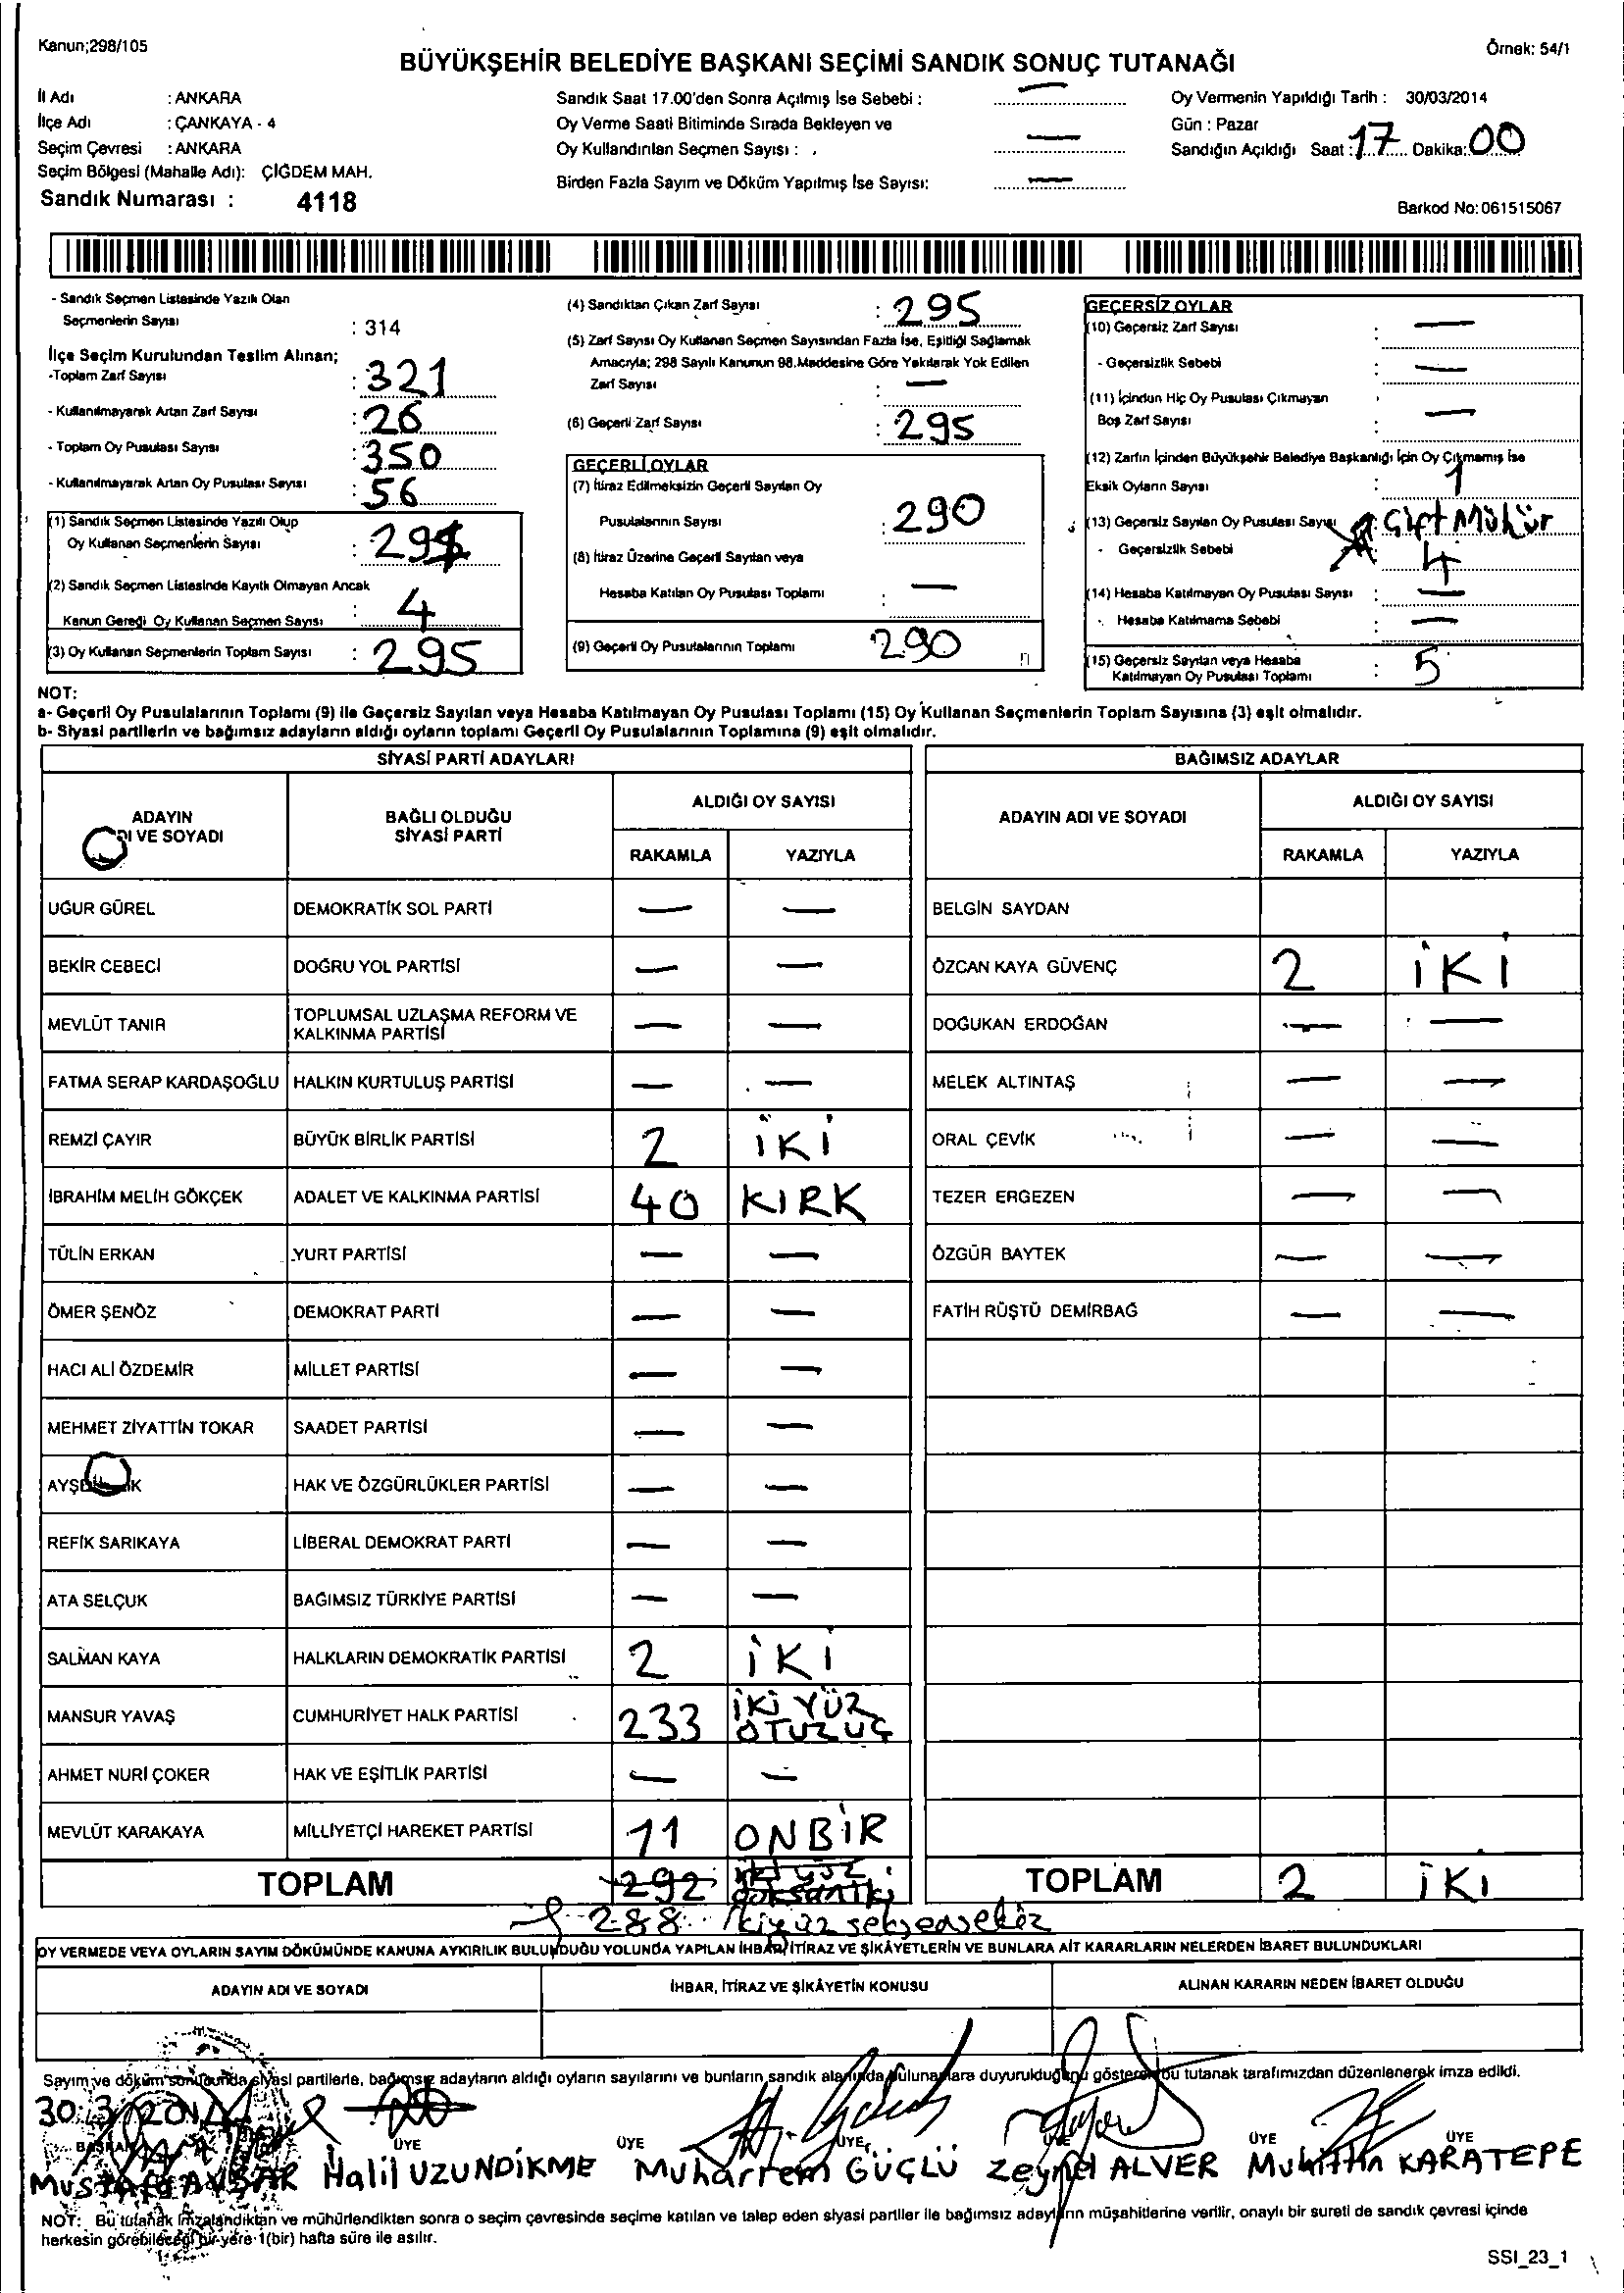 Kanun;298/105
Örnek: 54/1
BÜYÜKŞEHİR BELEDİYE BAŞKANI SEÇİMİ SANDIK SONUÇ TUTANAĞI
İl Adı : ANKARA
İlçe Adı : ÇANKAYA - 4
Seçim Çevresi : ANKARA
Seçim Bölgesi (Mahalle Adı): ÇİĞDEM MAH.
Sandık Numarası : 4118
Sandık Saat 17.00'den Sonra Açılmış İse Sebebi : —
Oy Verme Saati Bitiminde Sırada Bekleyen ve
Oy Kullandırılan Seçmen Sayısı : —
Birden Fazla Sayım ve Döküm Yapılmış İse Sayısı: —
Oy Vermenin Yapıldığı Tarih : 30/03/2014
Gün : Pazar
Sandığın Açıldığı Saat : 17 Dakika: 00
Barkod No:061515067
- Sandık Seçmen Listesinde Yazılı Olan
Seçmenlerin Sayısı : 314
İlçe Seçim Kurulundan Teslim Alınan;
-Toplam Zarf Sayısı : 321
- Kullanılmayarak Artan Zarf Sayısı : 26
- Toplam Oy Pusulası Sayısı : 350
- Kullanılmayarak Artan Oy Pusulası Sayısı : 56
(1) Sandık Seçmen Listesinde Yazılı Olup
Oy Kullanan Seçmenlerin Sayısı :
(2) Sandık Seçmen Listesinde Kayıtlı Olmayan Ancak
Kanun Gereği Oy Kullanan Seçmen Sayısı : 4
(3) Oy Kullanan Seçmenlerin Toplam Sayısı : 295
(4) Sandıktan Çıkan Zarf Sayısı : 295
(5) Zarf Sayısı Oy Kullanan Seçmen Sayısından Fazla İse, Eşitliği Sağlamak
Amacıyla; 298 Sayılı Kanunun 98.Maddesine Göre Yakılarak Yok Edilen
Zarf Sayısı : —
(6) Geçerli Zarf Sayısı : 295
GEÇERLİ OYLAR
(7) İtiraz Edilmeksizin Geçerli Sayılan Oy
Pusulalarının Sayısı : 290
(8) İtiraz Üzerine Geçerli Sayılan veya
Hesaba Katılan Oy Pusulası Toplamı : —
(9) Geçerli Oy Pusulalarının Toplamı 290
GEÇERSİZ OYLAR
(10) Geçersiz Zarf Sayısı : —
- Geçersizlik Sebebi : —
(11) İçinden Hiç Oy Pusulası Çıkmayan
Boş Zarf Sayısı : —
(12) Zarfın İçinden Büyükşehir Belediye Başkanlığı İçin Oy Çıkmamış İse
Eksik Oyların Sayısı : 1
(13) Geçersiz Sayılan Oy Pusulası Sayısı : Çift Mühür
- Geçersizlik Sebebi : 4
(14) Hesaba Katılmayan Oy Pusulası Sayısı : —
- Hesaba Katılmama Sebebi : —
(15) Geçersiz Sayılan veya Hesaba
Katılmayan Oy Pusulası Toplamı : 5
NOT:
a- Geçerli Oy Pusulalarının Toplamı (9) ile Geçersiz Sayılan veya Hesaba Katılmayan Oy Pusulası Toplamı (15) Oy Kullanan Seçmenlerin Toplam Sayısına (3) eşit olmalıdır.
b- Siyasi partilerin ve bağımsız adayların aldığı oyların toplamı Geçerli Oy Pusulalarının Toplamına (9) eşit olmalıdır.
SİYASİ PARTİ ADAYLARI
ADAYIN
DI VE SOYADI
BAĞLI OLDUĞU
SİYASİ PARTİ
ALDIĞI OY SAYISI
RAKAMLA YAZIYLA
UĞUR GÜREL DEMOKRATİK SOL PARTİ — —
BEKİR CEBECİ DOĞRU YOL PARTİSİ — —
MEVLÜT TANIR TOPLUMSAL UZLAŞMA REFORM VE
KALKINMA PARTİSİ — —
FATMA SERAP KARDAŞOĞLU HALKIN KURTULUŞ PARTİSİ — —
REMZİ ÇAYIR BÜYÜK BİRLİK PARTİSİ 2 İKİ
İBRAHİM MELİH GÖKÇEK ADALET VE KALKINMA PARTİSİ 40 KIRK
TÜLİN ERKAN YURT PARTİSİ — —
ÖMER ŞENÖZ DEMOKRAT PARTİ — —
HACI ALİ ÖZDEMİR MİLLET PARTİSİ — —
MEHMET ZİYATTİN TOKAR SAADET PARTİSİ — —
HAK VE ÖZGÜRLÜKLER PARTİSİ — —
REFİK SARIKAYA LİBERAL DEMOKRAT PARTİ — —
ATA SELÇUK BAĞIMSIZ TÜRKİYE PARTİSİ — —
SALMAN KAYA HALKLARIN DEMOKRATİK PARTİSİ 2 İKİ
MANSUR YAVAŞ CUMHURİYET HALK PARTİSİ 233 İKİ YÜZ
OTUZ ÜÇ
AHMET NURİ ÇOKER HAK VE EŞİTLİK PARTİSİ — —
MEVLÜT KARAKAYA MİLLİYETÇİ HAREKET PARTİSİ 11 ONBİR
TOPLAM 292 iki yüz
doksan iki
288 ikiyüz seksensekiz
BAĞIMSIZ ADAYLAR
ADAYIN ADI VE SOYADI
ALDIĞI OY SAYISI
RAKAMLA YAZIYLA
BELGİN SAYDAN
ÖZCAN KAYA GÜVENÇ 2 İKİ
DOĞUKAN ERDOĞAN — —
MELEK ALTINTAŞ — —
ORAL ÇEVİK — —
TEZER ERGEZEN — —
ÖZGÜR BAYTEK — —
FATİH RÜŞTÜ DEMİRBAĞ — —
TOPLAM 2 İKİ
OY VERMEDE VEYA OYLARIN SAYIM DÖKÜMÜNDE KANUNA AYKIRILIK BULUNDUĞU YOLUNDA YAPILAN İHBAR, İTİRAZ VE ŞİKÂYETLERİN VE BUNLARA AİT KARARLARIN NELERDEN İBARET BULUNDUKLARI
ADAYIN ADI VE SOYADI İHBAR, İTİRAZ VE ŞİKÂYETİN KONUSU ALINAN KARARIN NEDEN İBARET OLDUĞU
Sayım ve döküm sonucunda siyasi partilerle, bağımsız adayların aldığı oyların sayılarını ve bunların sandık alanında bulunanlara duyurulduğunu gösteren bu tutanak tarafımızdan düzenlenerek imza edildi.
30.3.2014
BAŞKAN ÜYE ÜYE ÜYE ÜYE ÜYE ÜYE
Mustafa AVŞAR Halil UZUNDİKME Muharrem GÜÇLÜ Zeynel ALVER Muhittin KARATEPE
NOT: Bu tutanak imzalandıktan ve mühürlendikten sonra o seçim çevresinde seçime katılan ve talep eden siyasi partiler ile bağımsız adayların müşahitlerine verilir, onaylı bir sureti de sandık çevresi içinde
herkesin görebileceği bir yere 1(bir) hafta süre ile asılır.
SSI_23_1